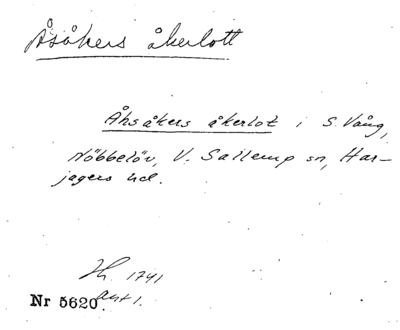 Åsåkers åkerlott
Åhsåkers åkerlot i S. Vång,
Nöbbelöv, V. Sallerup sn, Har-
jagers hd.
1741
akt 1.
Nr 5620